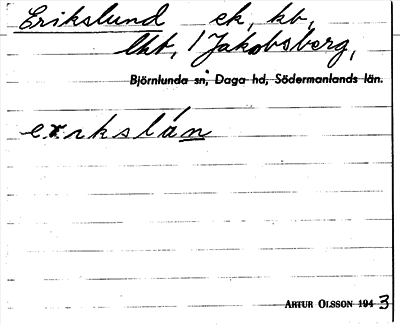 Erikslund ek, kb,
lht, / Jakobsberg,
Björnlunda sn, Daga hd, Södermanlands län.
erikslán
ARTUR OLSSON 1943